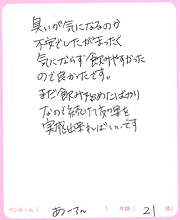 臭いが気になるのか
不安でしたがまったく
気にならず飲みやすかった
ので良かったです。
まだ飲み始めたばかり
なので続けて効果を
実感出来ればいいです
ペンネーム( あーさん ) 年齢( 21 歳)